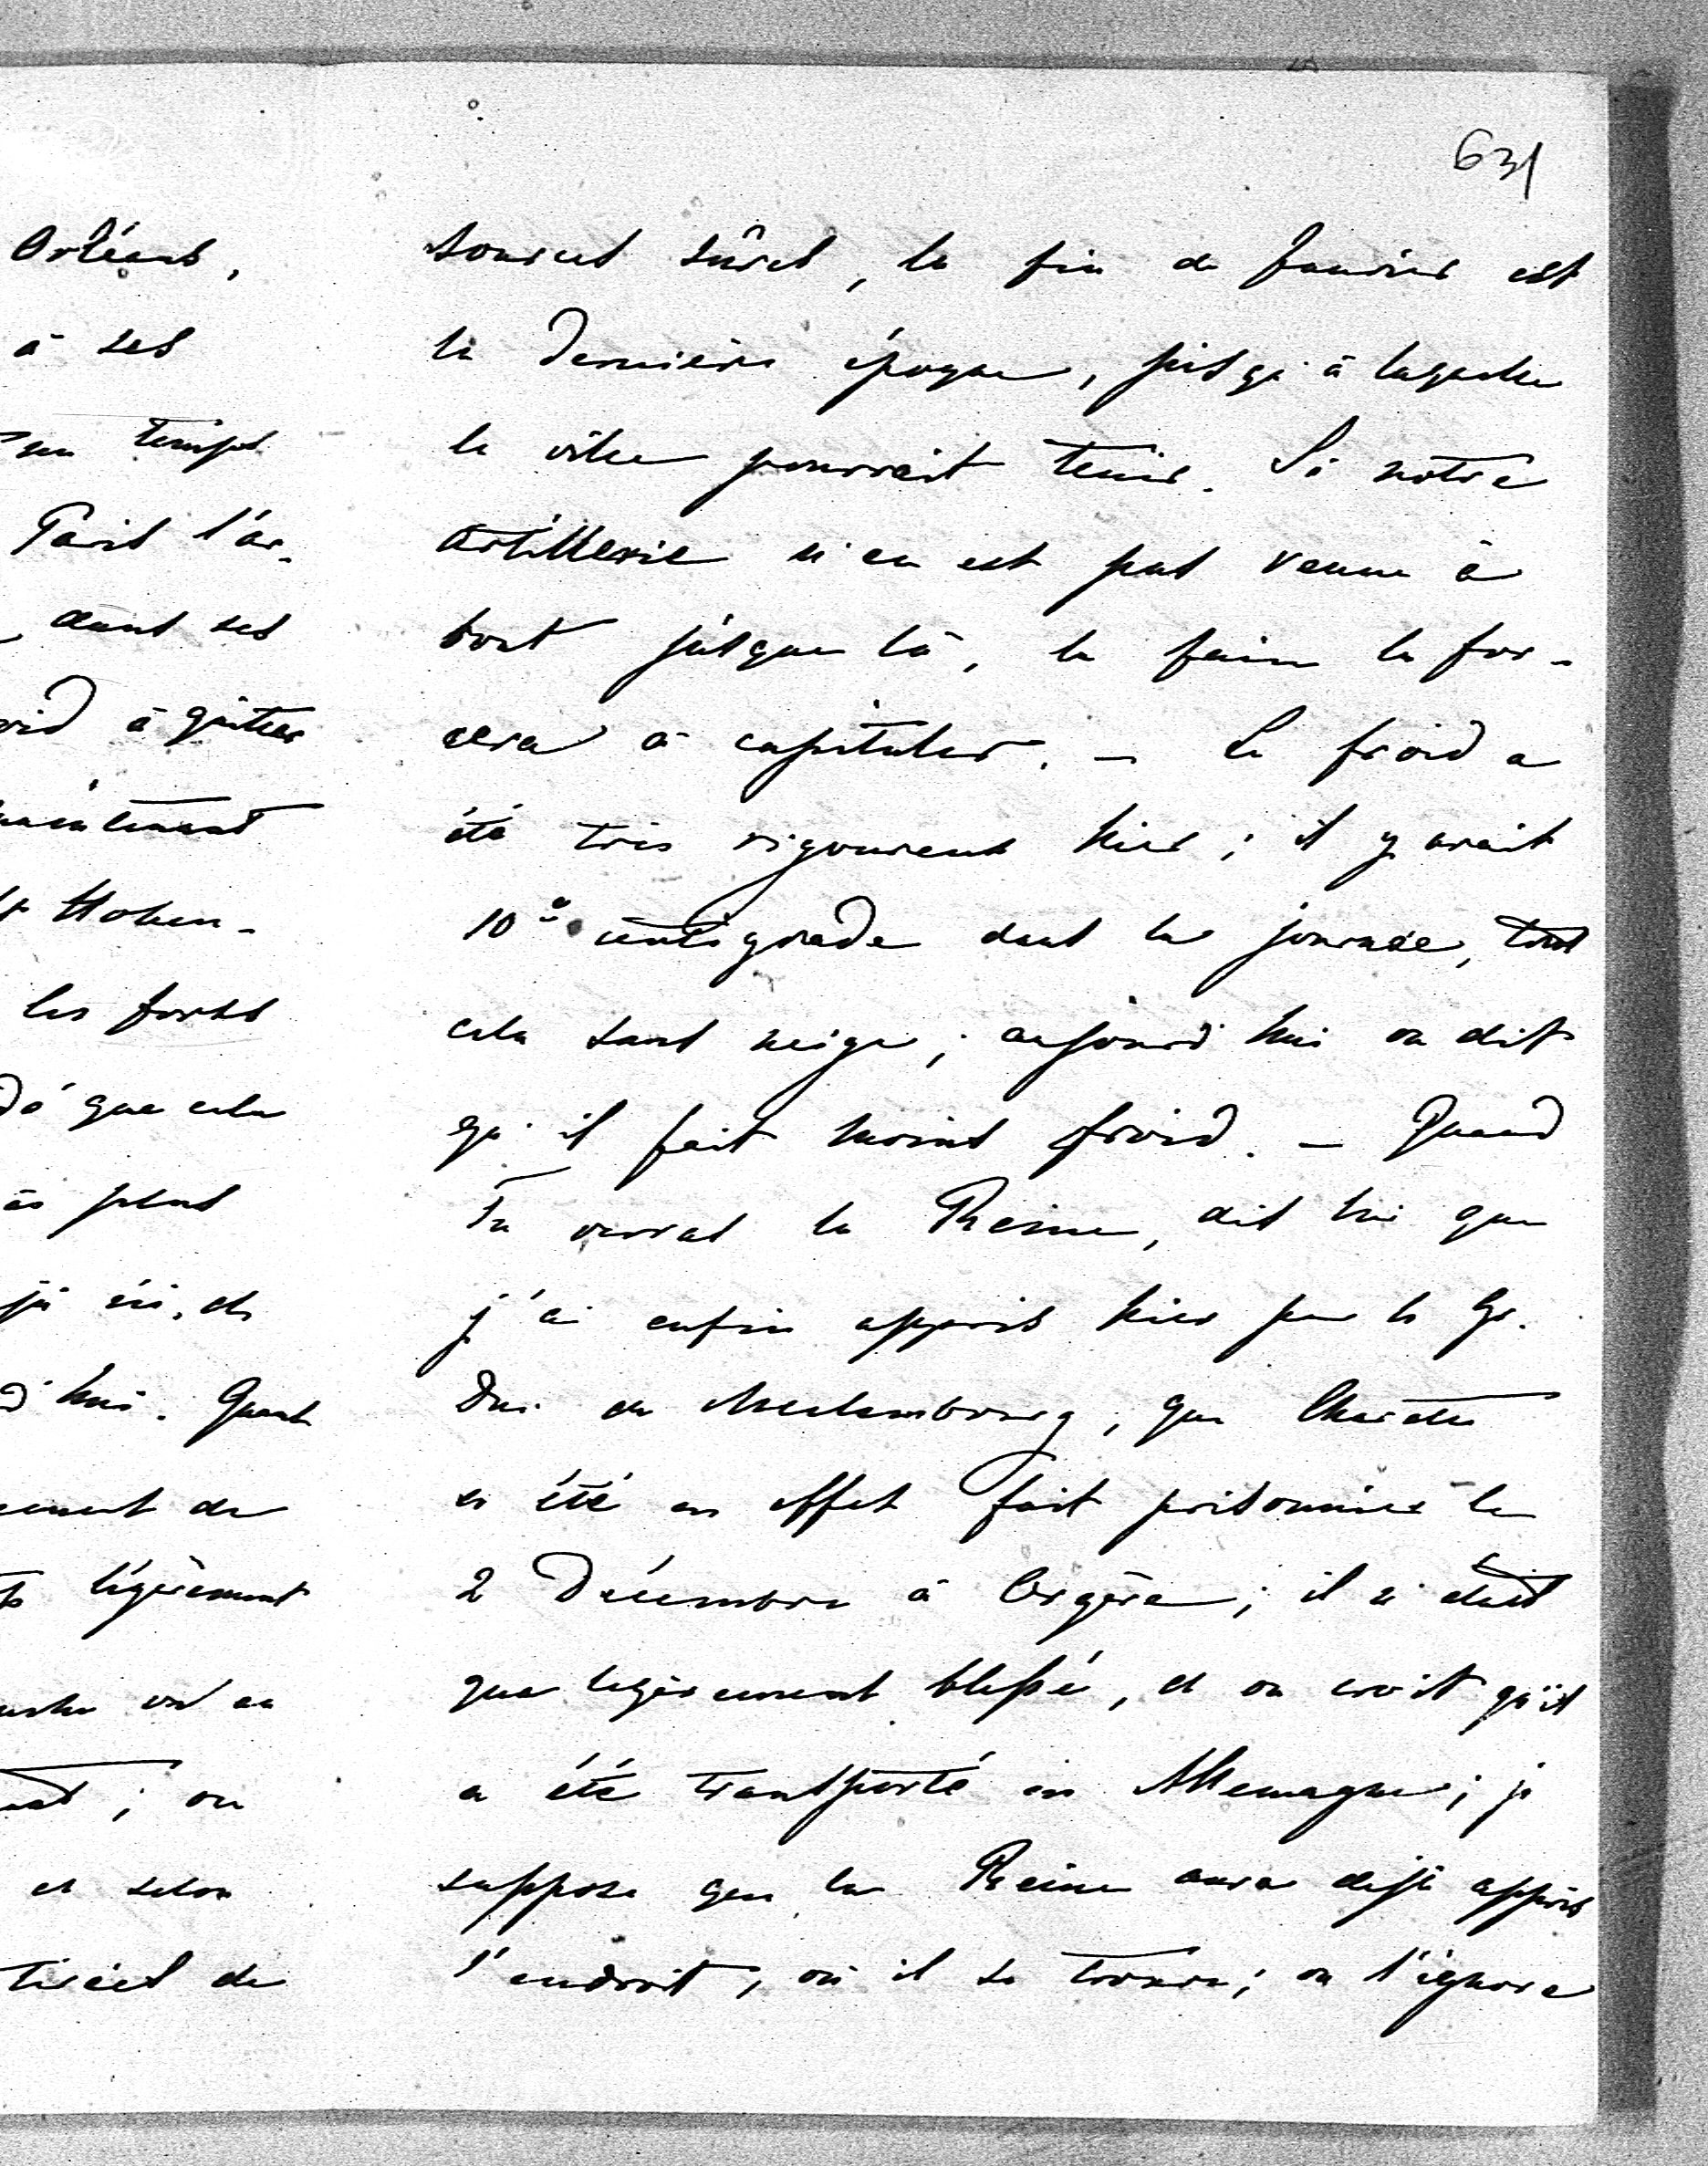 631
Orléans,
à ses
temps
Paris l'ar-
dans ses
à quitter
maintenant
Hohen-
les forts
que cela
plus
ici, et
hui. Quant
de
légèrement
on en
; on
et selon
tirées de
sources sûres, la fin de Janvier est
la dernière époque, jusqu'à laquelle
la ville pourrait tenir. Si notre
artillerie n'en est pas venue à
bout jusque là, la faim la for-
cera à capituler. – Le froid a
été très rigoureux hier; il y avait
10° centigrade dans la journée, tout
cela sans neige; aujourd'hui on dit
qu'il fait moins froid. – Quand
Tu verras la Reine, dis lui que
j'ai enfin appris hier par le Gr.
Duc de Mecklembourg, que Charette
a été en effet fait prisonnier le
2 Décembre à Orgère; il n'était
que legèrement blessé, et on croit qu'il
a été transporté en Allemagne; je
suppose que la Reine aura dejà appris
l'endroit, où il se trouve; on l'ignore